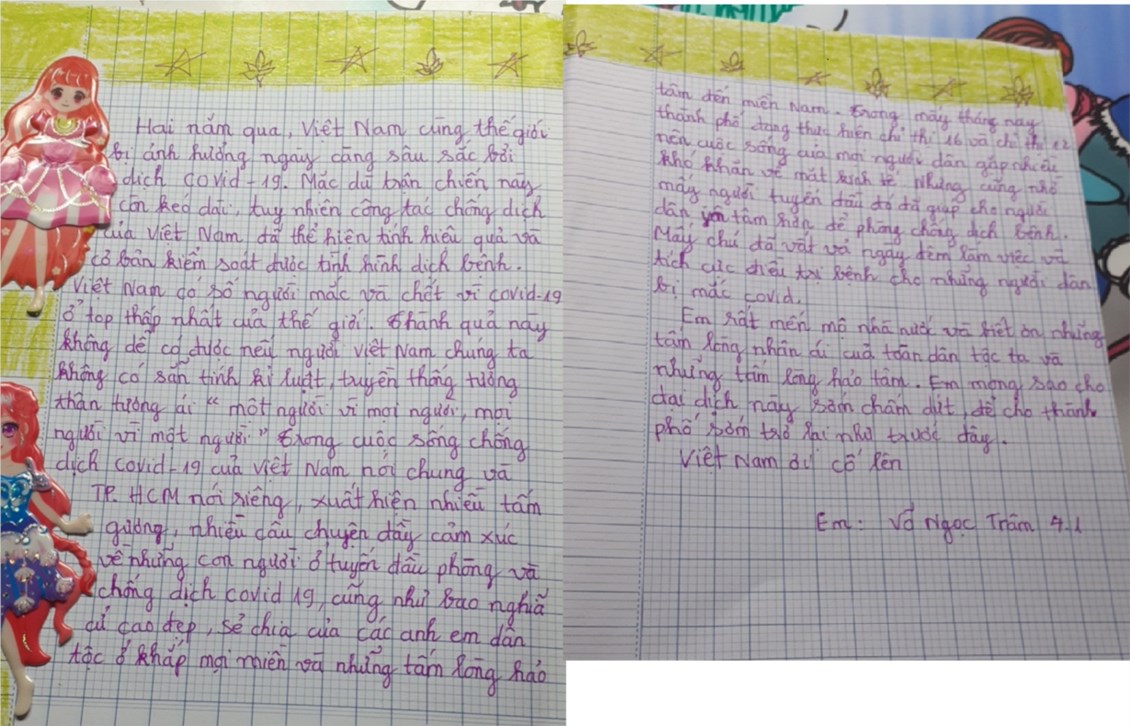 Hai năm qua, Việt Nam cùng thế giới
bị ảnh hưởng ngày càng sâu sắc bởi
dịch covid-19. Mặc dù trận chiến này
còn kéo dài, tuy nhiên công tác chống dịch
của Việt Nam đã thể hiện tính hiệu quả và
cơ bản kiểm soát được tình hình dịch bệnh.
Việt Nam có số người mắc và chết vì covid-19
ở top thấp nhất của thế giới. Thành quả này
không dễ có được nếu người Việt Nam chúng ta
không có sẵn tính kỉ luật, truyền thống tương
thân tương ái "một người vì mọi người, mọi
người vì một người" Trong cuộc sống chống
dịch covid-19 của Việt Nam nói chung và
TP. HCM nói riêng, xuất hiện nhiều tấm
gương, nhiều câu chuyện đầy cảm xúc
về những con người ở tuyến đầu phòng và
chống dịch covid 19, cũng như bao nghĩa
cử cao đẹp, sẻ chia của các anh em dân
tộc ở khắp mọi miền và những tấm lòng hảo
tâm đến miền Nam. Trong mấy tháng nay
thành phố đang thực hiện chỉ thị 16 và chỉ thị 12
nên cuộc sống của mọi người dân gặp nhiều
khó khăn về mặt kinh tế. Nhưng cũng nhờ
mấy người tuyến đầu đó đã giúp cho người
dân yên tâm hơn để phòng chống dịch bệnh.
Mấy chú đã vất vả ngày đêm làm việc và
tích cực điều trị bệnh cho những người dân
bị mắc covid.
Em rất mến mộ nhà nước và biết ơn những
tấm lòng nhân ái của toàn dân tộc ta và
những tấm lòng hảo tâm. Em mong sao cho
đại dịch này sớm chấm dứt, để cho thành
phố sớm trở lại như trước đây.
Việt Nam ơi cố lên
Em: Võ Ngọc Trâm 4.1